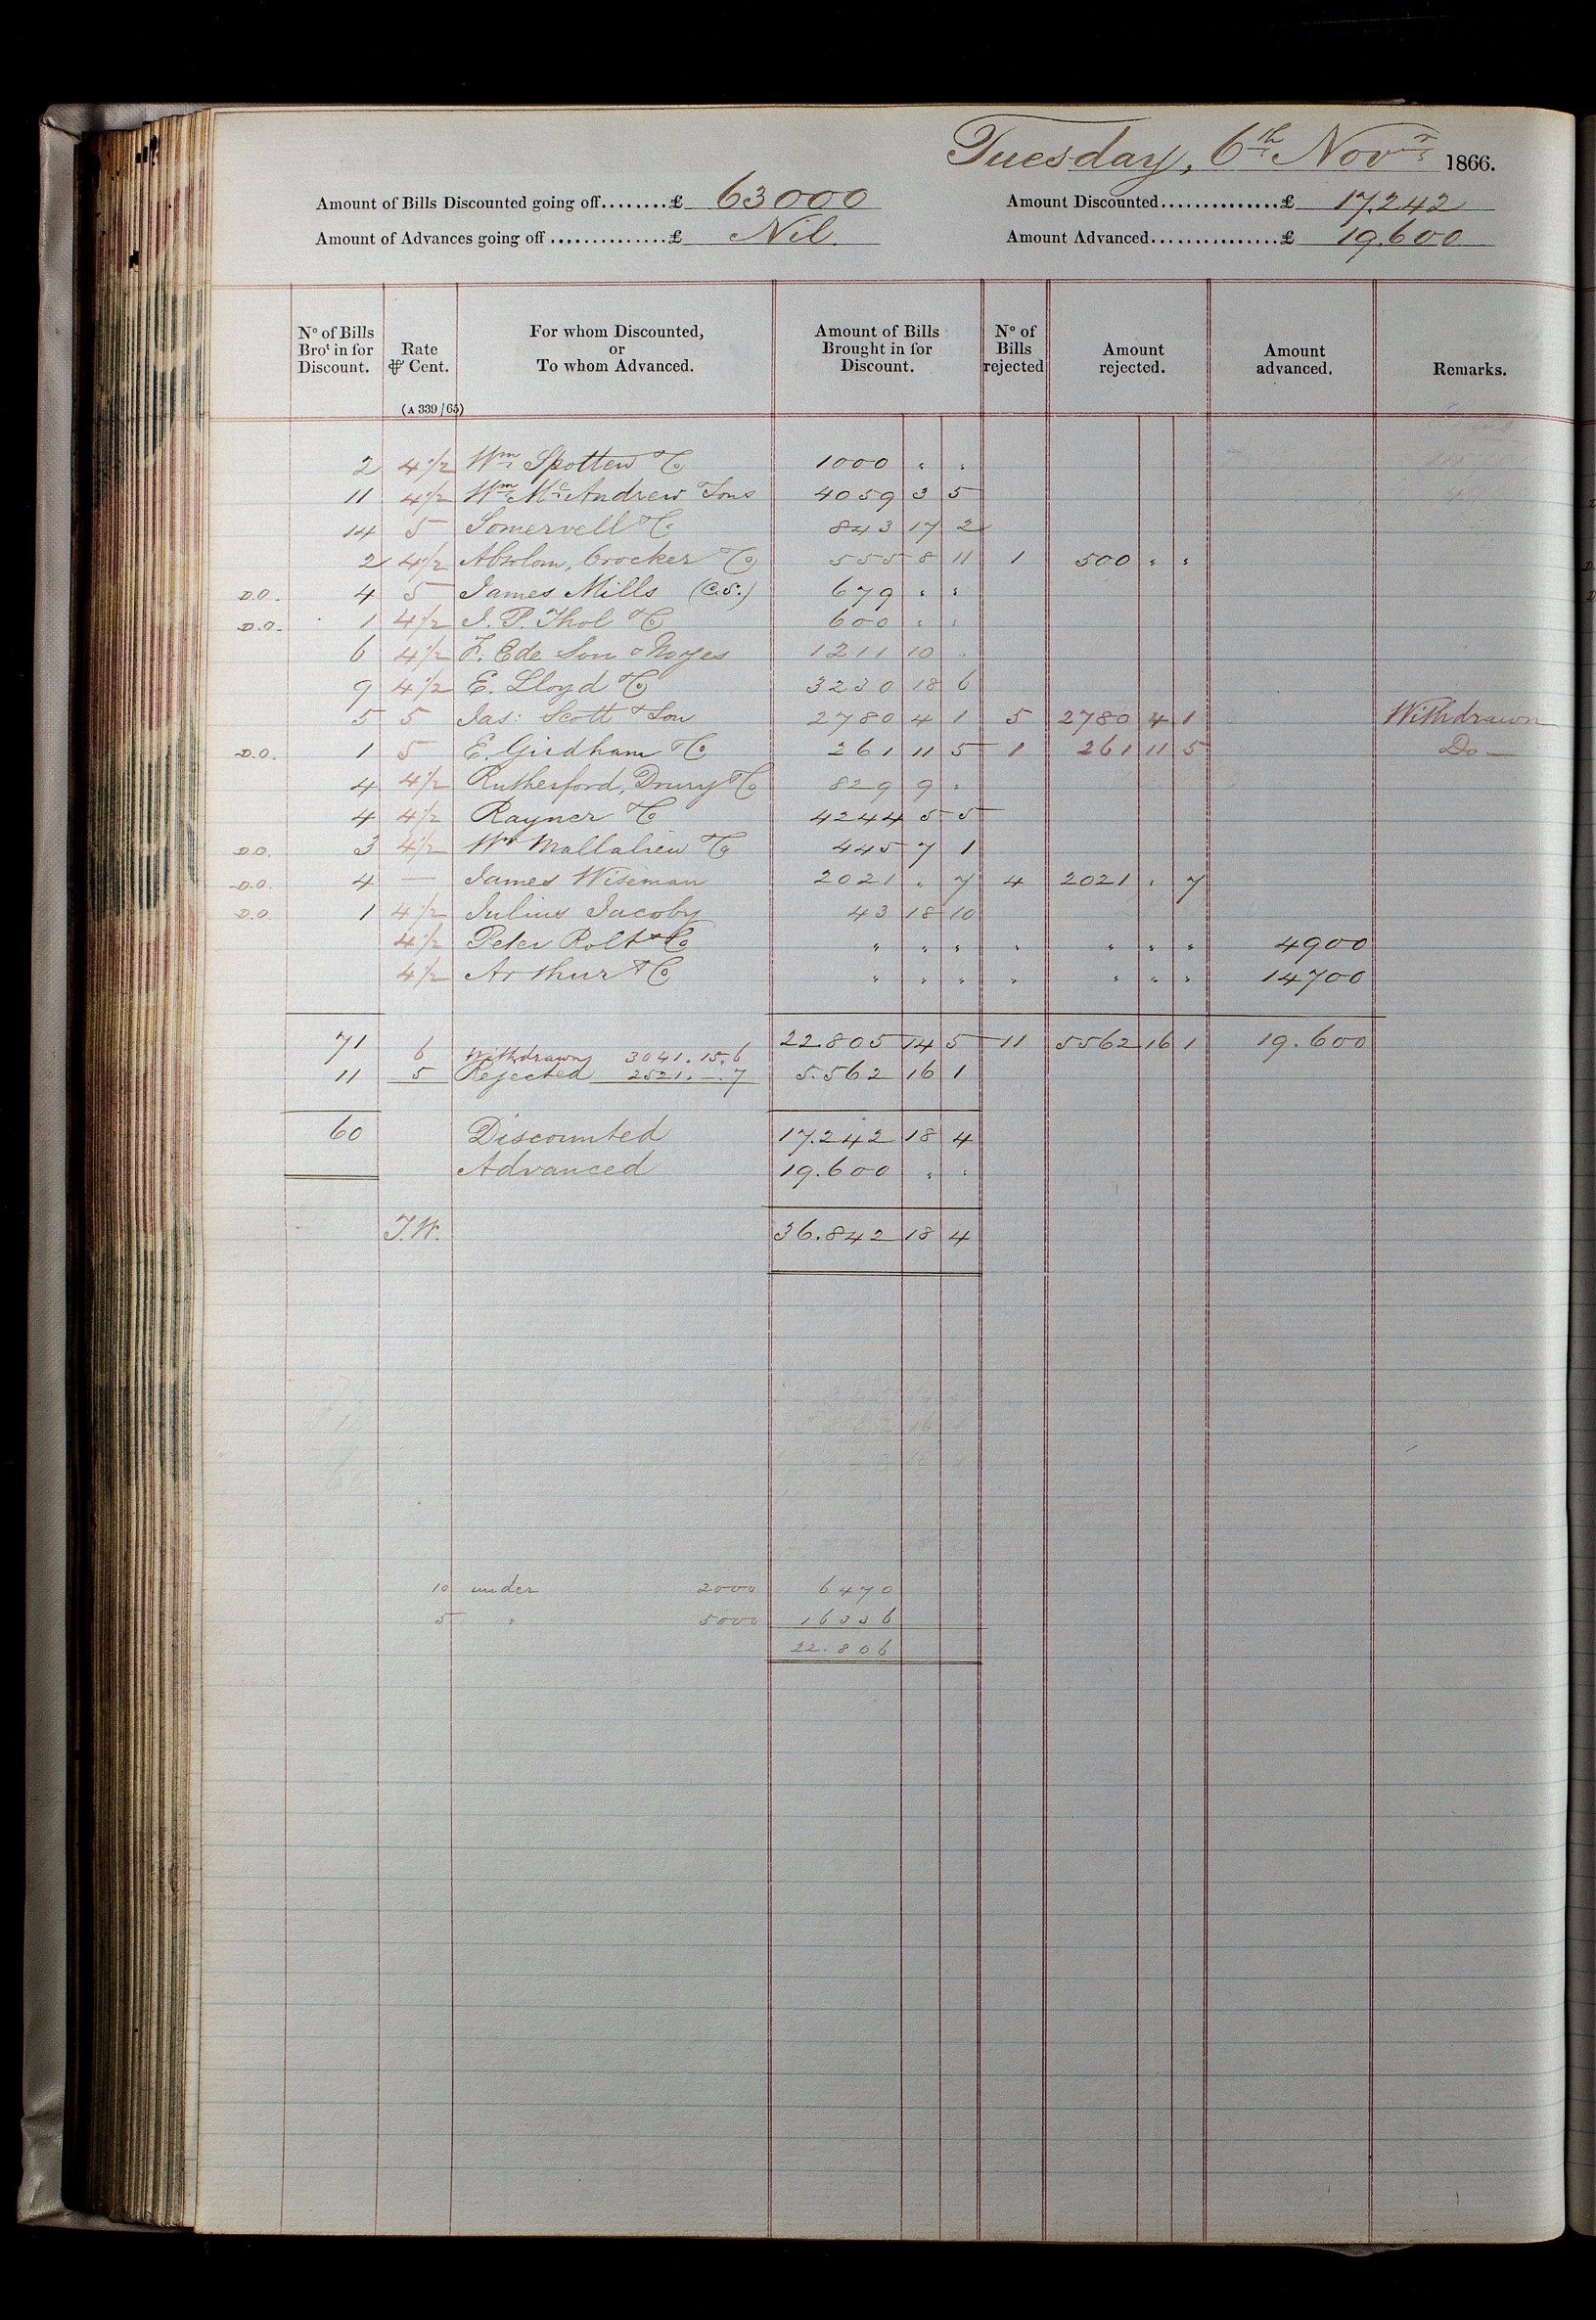 Tuesday, 6th Novr 1866.
Amount of Bills Discounted going off........£ 63000 Amount Discounted..............£ 17.242
Amount of Advances going off..............£ Nil. Amount Advanced...............£ 19.600
No of Bills Brot in for Discount. Rate ⅌ Cent. (A 339/65) For whom Discounted, or To whom Advanced. Amount of Bills Brought in for Discount. No of Bills rejected Amount rejected. Amount advanced. Remarks.
2 4½ Wm Spotten & Co 1000 " "
11 4½ Wm McAndrew & Sons 4059 3 5
14 5 Somervell & Co 843 17 2
2 4½ Absolom, Crocker & Co 555 8 11 1 500 " "
D.O. 4 5 James Mills (C.S.) 679 " "
D.O. 1 4½ J. P. Thol & Co 600 " "
6 4½ F. Ede Son & Noyes 1211 10 "
9 4½ E. Lloyd & Co 3230 18 6
5 5 Jas: Scott & Son 2780 4 1 5 2780 4 1 Withdrawn
D.O. 1 5 E. Girdham & Co 261 11 5 1 261 11 5 Do —
4 4½ Rutherford, Drury & Co 829 9 "
4 4½ Rayner & Co 4244 5 5
D.O. 3 4½ Wm Mallalieu & Co 445 7 1
D.O. 4 — James Wiseman 2021 " 7 4 2021 " 7
D.O. 1 4½ Julius Jacoby 43 18 10
4½ Peter Rolt & Co " " " " " " " 4900
4½ Arthur & Co " " " " " " " 14700
71 6 Withdrawn 3041.15.6 22.805 14 5 11 5562 16 1 19.600
11 5 Rejected 2521.–.7 5.562 16 1
60 Discounted 17.242 18 4
Advanced 19.600 " "
J.W. 36.842 18 4
10 under 2000 6470
5 " 5000 16336
22.806